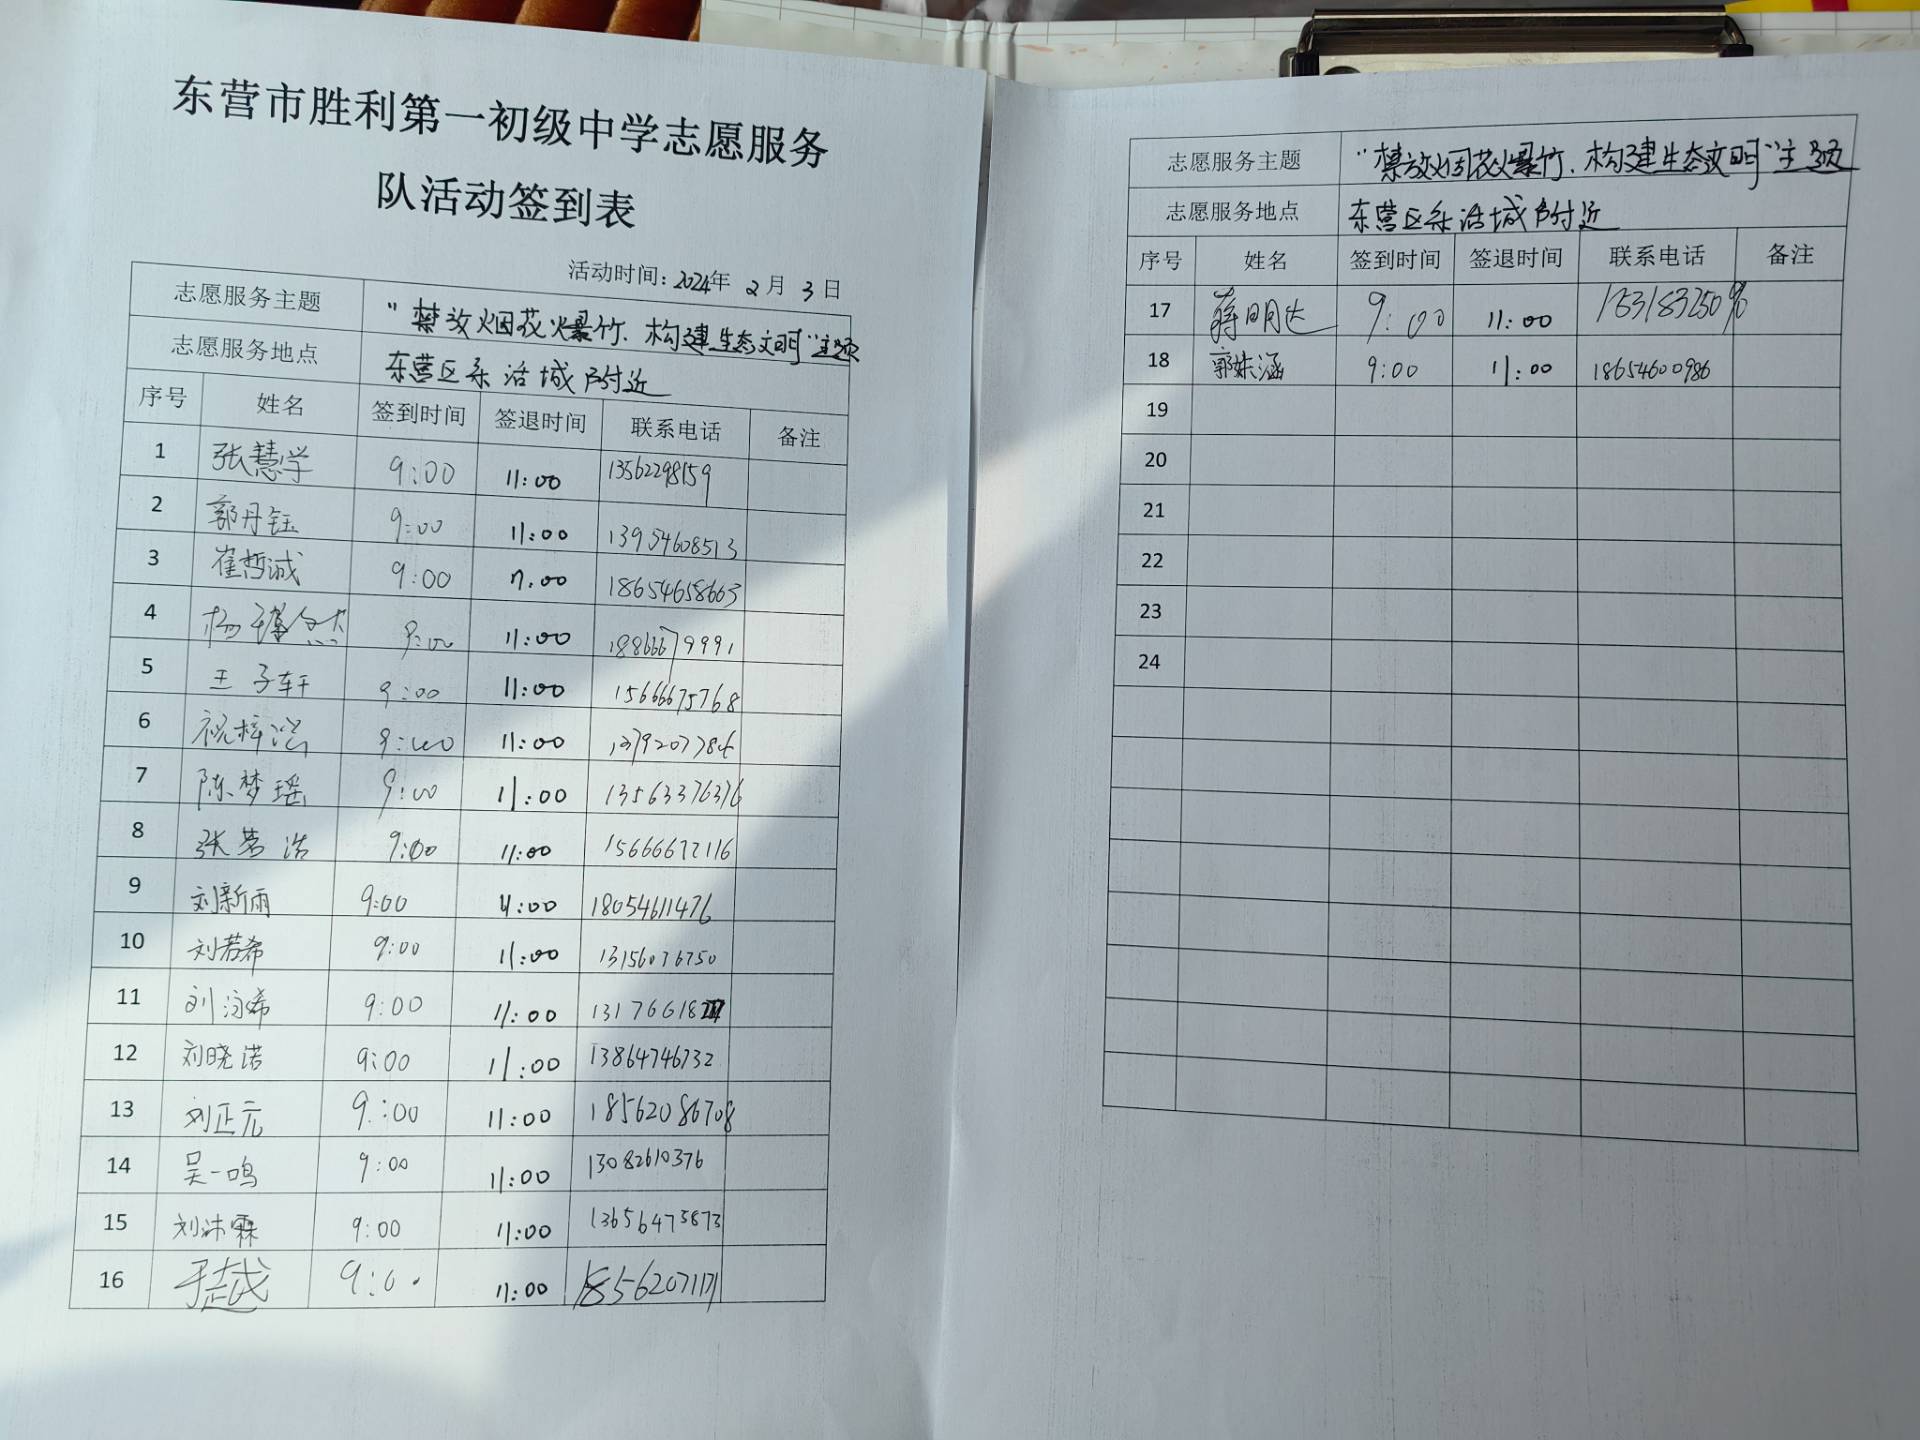 东营市胜利第一初级中学志愿服务
队活动签到表
活动时间：2024年 2 月 3 日
志愿服务主题 "禁放烟花爆竹、构建生态文明"主题
志愿服务地点 东营区乐活城附近
序号 姓名 签到时间 签退时间 联系电话 备注
1 张慧学 9:00 11:00 13562298159
2 郭丹钰 9:00 11:00 13954608513
3 崔哲诚 9:00 11:00 18654658663
4 9:00 11:00 18866679991
5 王子轩 9:00 11:00 15666675768
6 祝梓浩 9:00 11:00
7 陈梦瑶 9:00 11:00 13563376376
8 张 浩 9:00 11:00 15666672116
9 刘新雨 9:00 11:00 18054611476
10 刘若希 9:00 11:00 13156076750
11 刘泳希 9:00 11:00
12 刘晓诺 9:00 11:00 13864746732
13 刘正元 9:00 11:00 18562086708
14 吴一鸣 9:00 11:00 13082610376
15 刘沐霖 9:00 11:00 13656473873
16 于越 9:00 11:00 18562071171
志愿服务主题 "禁放烟花爆竹、构建生态文明"主题
志愿服务地点 东营区乐活城附近
序号 姓名 签到时间 签退时间 联系电话 备注
17 蒋明达 9:00 11:00
18 郭姝涵 9:00 11:00 18654600986
19
20
21
22
23
24